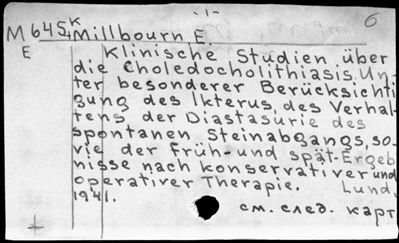 -1-
6
M645 K Millbourn E.
E Klinische Studien über
die Choledocholithiasis. Un-
ter besonderer Berücksichti
gung des Ikterus, des Verhal-
tens der Diastasurie des
spontanen Steinabgangs, so-
vie der Früh-und spät-Ergeb
nisse nach konservativer und
operativer Therapie. Lund,
1941.
см. след. карт